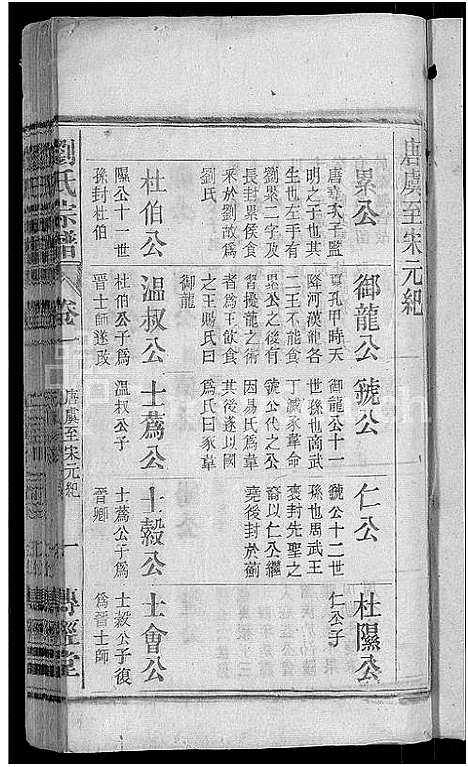 唐虞至宋元紀
累公
唐堯次子監
明之子也其
生也左手有
劉累二字及
長封累侯食
采於劉故為
劉氏
御龍公
夏孔甲時天
降河漢龍各
二王不能食
累公之後有
習擾龍之術
者為王飲食
之王賜氏曰
御龍
虢公
御龍公十一
世孫也商武
丁滅豕革命
虢公代之公
因易氏為韋
其後遂以國
為氏曰豕韋
仁公
虢公十二世
孫也周武王
褒封先聖之
裔以仁公繼
堯後封於薊
杜隰公
仁公子
杜伯公
隰公十一世
孫封杜伯
溫叔公
杜伯公子為
晉士師遂改
士蒍公
溫叔公子
士縠公
士蒍公子為
晉卿
士會公
士縠公子復
為晉士師
劉氏宗譜
卷一
唐虞至宋元紀
一
傳經堂